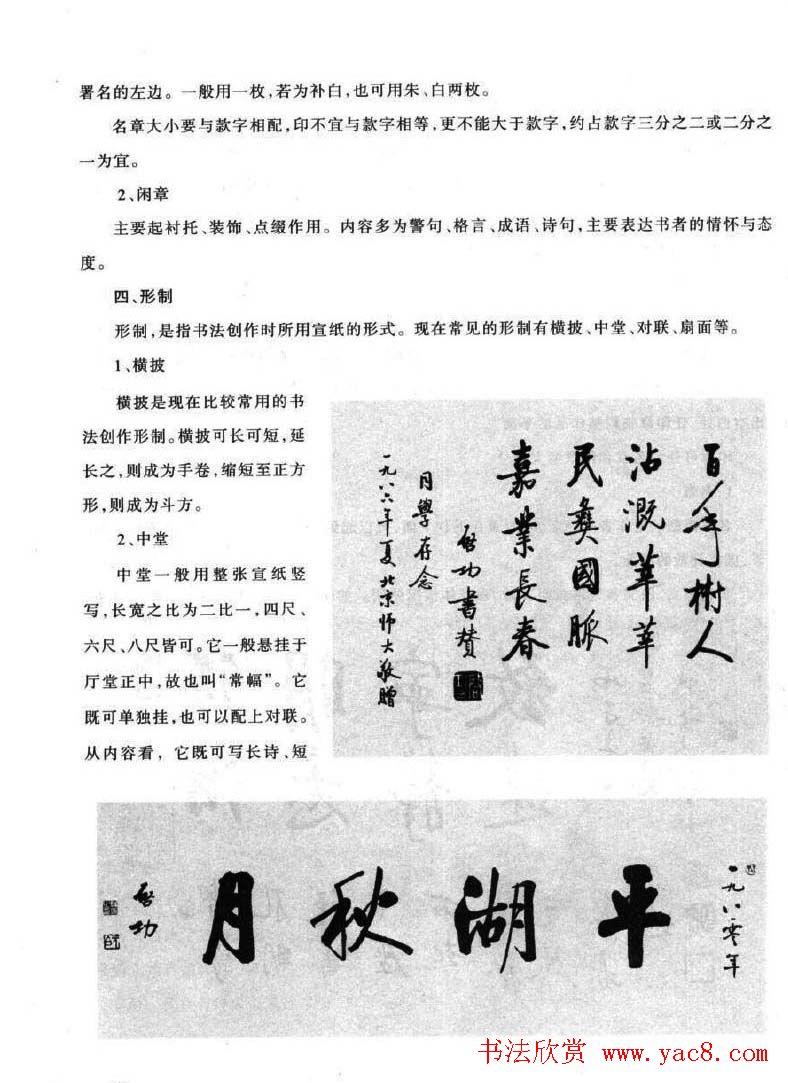 署名的左边。一般用一枚,若为补白,也可用朱、白两枚。
名章大小要与款字相配,印不宜与款字相等,更不能大于款字,约占款字三分之二或二分之
一为宜。
2、闲章
主要起衬托、装饰、点缀作用。内容多为警句、格言、成语、诗句,主要表达书者的情怀与态
度。
四、形制
形制,是指书法创作时所用宣纸的形式。现在常见的形制有横披、中堂、对联、扇面等。
1、横披
横披是现在比较常用的书
法创作形制。横披可长可短,延
长之,则成为手卷,缩短至正方
形,则成为斗方。
2、中堂
中堂一般用整张宣纸竖
写,长宽之比为二比一,四尺、
六尺、八尺皆可。它一般悬挂于
厅堂正中,故也叫“常幅”。它
既可单独挂,也可以配上对联。
从内容看，它既可写长诗、短
百年树人
沾溉莘莘
民彝國脈
嘉業長春
启功書赞
同學存念
一九八六年夏北京师大敬贈
一九八零年
平湖秋月
启功
书法欣赏 www.yac8.com